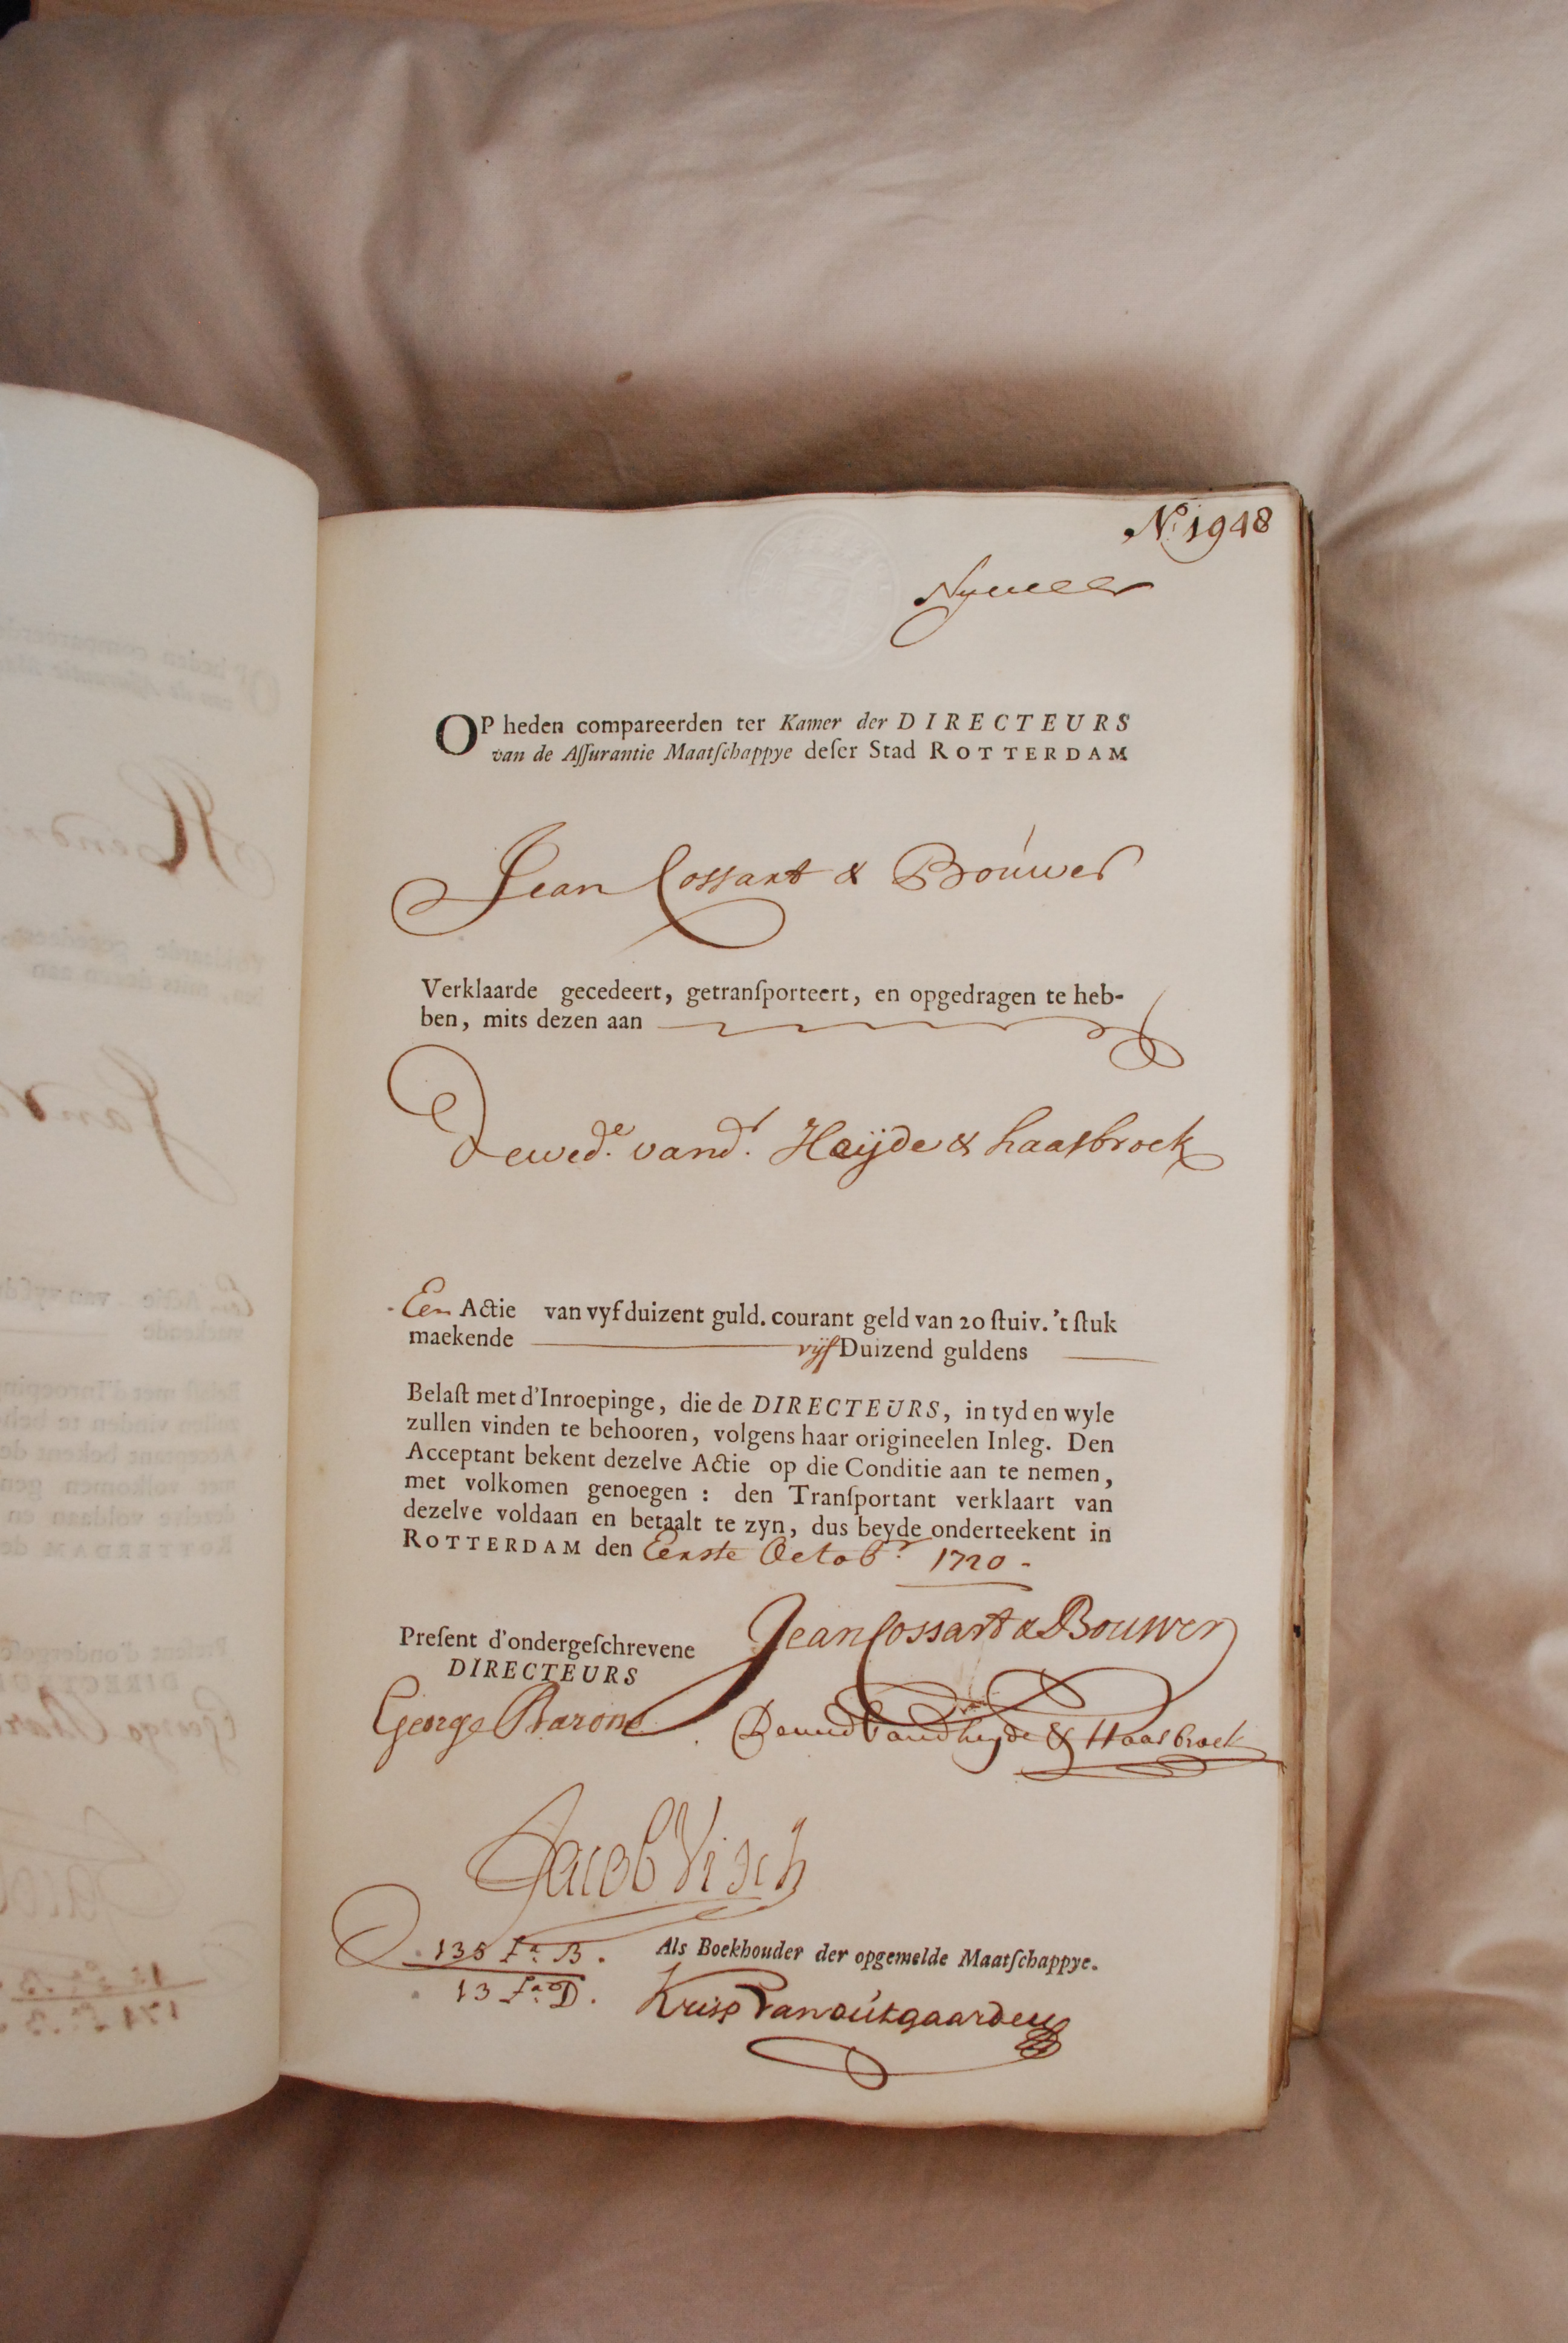 No. 1948
OP heden compareerden ter Kamer der DIRECTEURS
van de Aſſurantie Maatſchappye deſer Stad ROTTERDAM
Jean Cossart & Bouwer
Verklaarde gecedeert, getranſporteert, en opgedragen te heb-
ben, mits dezen aan
De wed.e vand.r Heijde & haasbroek
Een Actie van vyf duizent guld. courant geld van 20 ſtuiv. 't ſtuk
maekende vijf Duizend guldens
Belaſt met d'Inroepinge, die de DIRECTEURS, in tyd en wyle
zullen vinden te behooren, volgens haar origineelen Inleg. Den
Acceptant bekent dezelve Actie op die Conditie aan te nemen,
met volkomen genoegen : den Tranſportant verklaart van
dezelve voldaan en betaalt te zyn, dus beyde onderteekent in
ROTTERDAM den Eerste Octob.r 1720 -
Jean Cossart & Bouwer
Preſent d'ondergeſchrevene
DIRECTEURS
George Baron
De wed vand heyde & Haasbroek
Jacob Visch
135 F.o B.
13 F.o D.
Als Boekhouder der opgemelde Maatſchappye.
Krisp van outgaarden